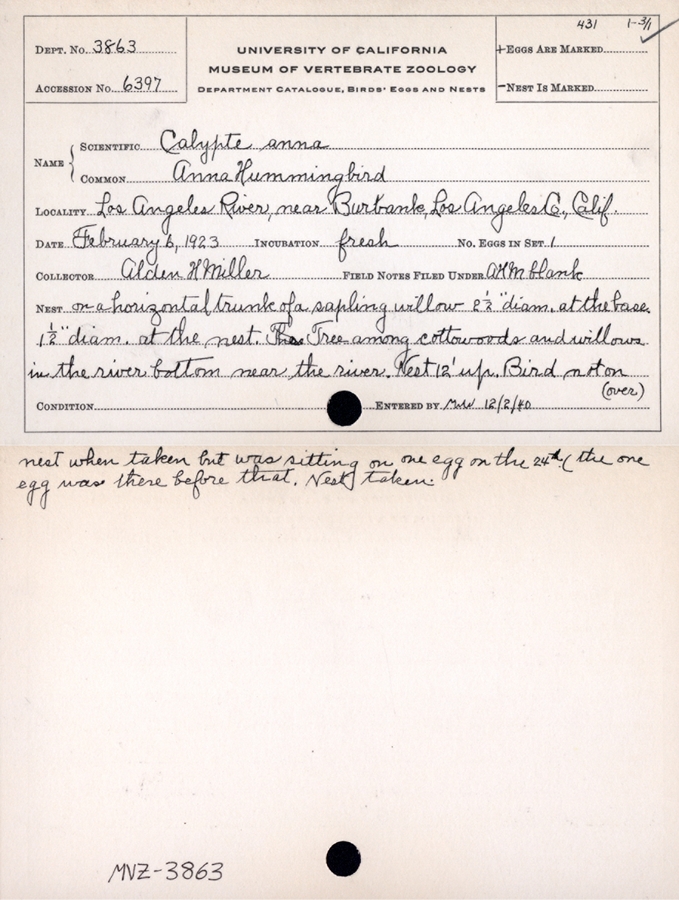 431 1-3/1
Dept. No. 3863
Accession No. 6397
UNIVERSITY OF CALIFORNIA
MUSEUM OF VERTEBRATE ZOOLOGY
Department Catalogue, Birds' Eggs and Nests
+Eggs Are Marked
-Nest Is Marked
Name { Scientific Calypte anna
Common Anna Hummingbird
Locality Los Angeles River, near Burbank, Los Angeles Co., Calif.
Date February 6, 1923 Incubation fresh No. Eggs in Set 1
Collector Alden H Miller Field Notes Filed Under AHM blank
Nest on a horizontal trunk of a sapling willow 2½" diam. at the base.
1½" diam. at the nest. Tree among cottowoods and willows
in the river bottom near the river. Nest 12' up. Bird not on
(over)
Condition Entered by MWW 12/2/40
nest when taken but was sitting on one egg on the 24th. (the one
egg was there before that. Nest taken.
MVZ-3863